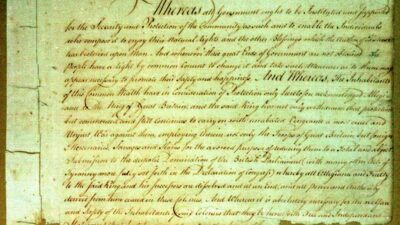 Whereas all Government ought to be Instituted and supported
for the Security and Protection of the Community as such and to enable the Individuals
who compose it to enjoy their natural Rights and the other Blessings which the Author of Existence
has bestowed upon Man And whenever these great Ends of Government are not obtained the
People have a right by common Consent to change it and take such Measures as to them may
appear necessary to promote their Safety and happiness And Whereas The Inhabitants
of this Common Wealth have in Consideration of Protection only heretofore Acknowledged Allegiance
to the King of Great Britain and the said King has not only withdrawn that protection
but commenced and still Continues to carry on with unabated Vengeance a most cruel and
Unjust War against them employing therein not only the Troops of Great Britain but foreign
Mercenaries Savages and Slaves for the avowed purpose of reducing them to a Total and abject
Submission to the despotic Domination of the British Parliament with many other Acts of
Tyranny more fully set forth in the Declaration of Congress whereby all Allegiance and Fealty
to the said King and his Successors are dissolved and at an End and all power and authority
derived from him ceased in these Colonies And Whereas it is absolutely necessary for the welfare
and Safety of the Inhabitants of said Colonies that they be henceforth Free and Independent